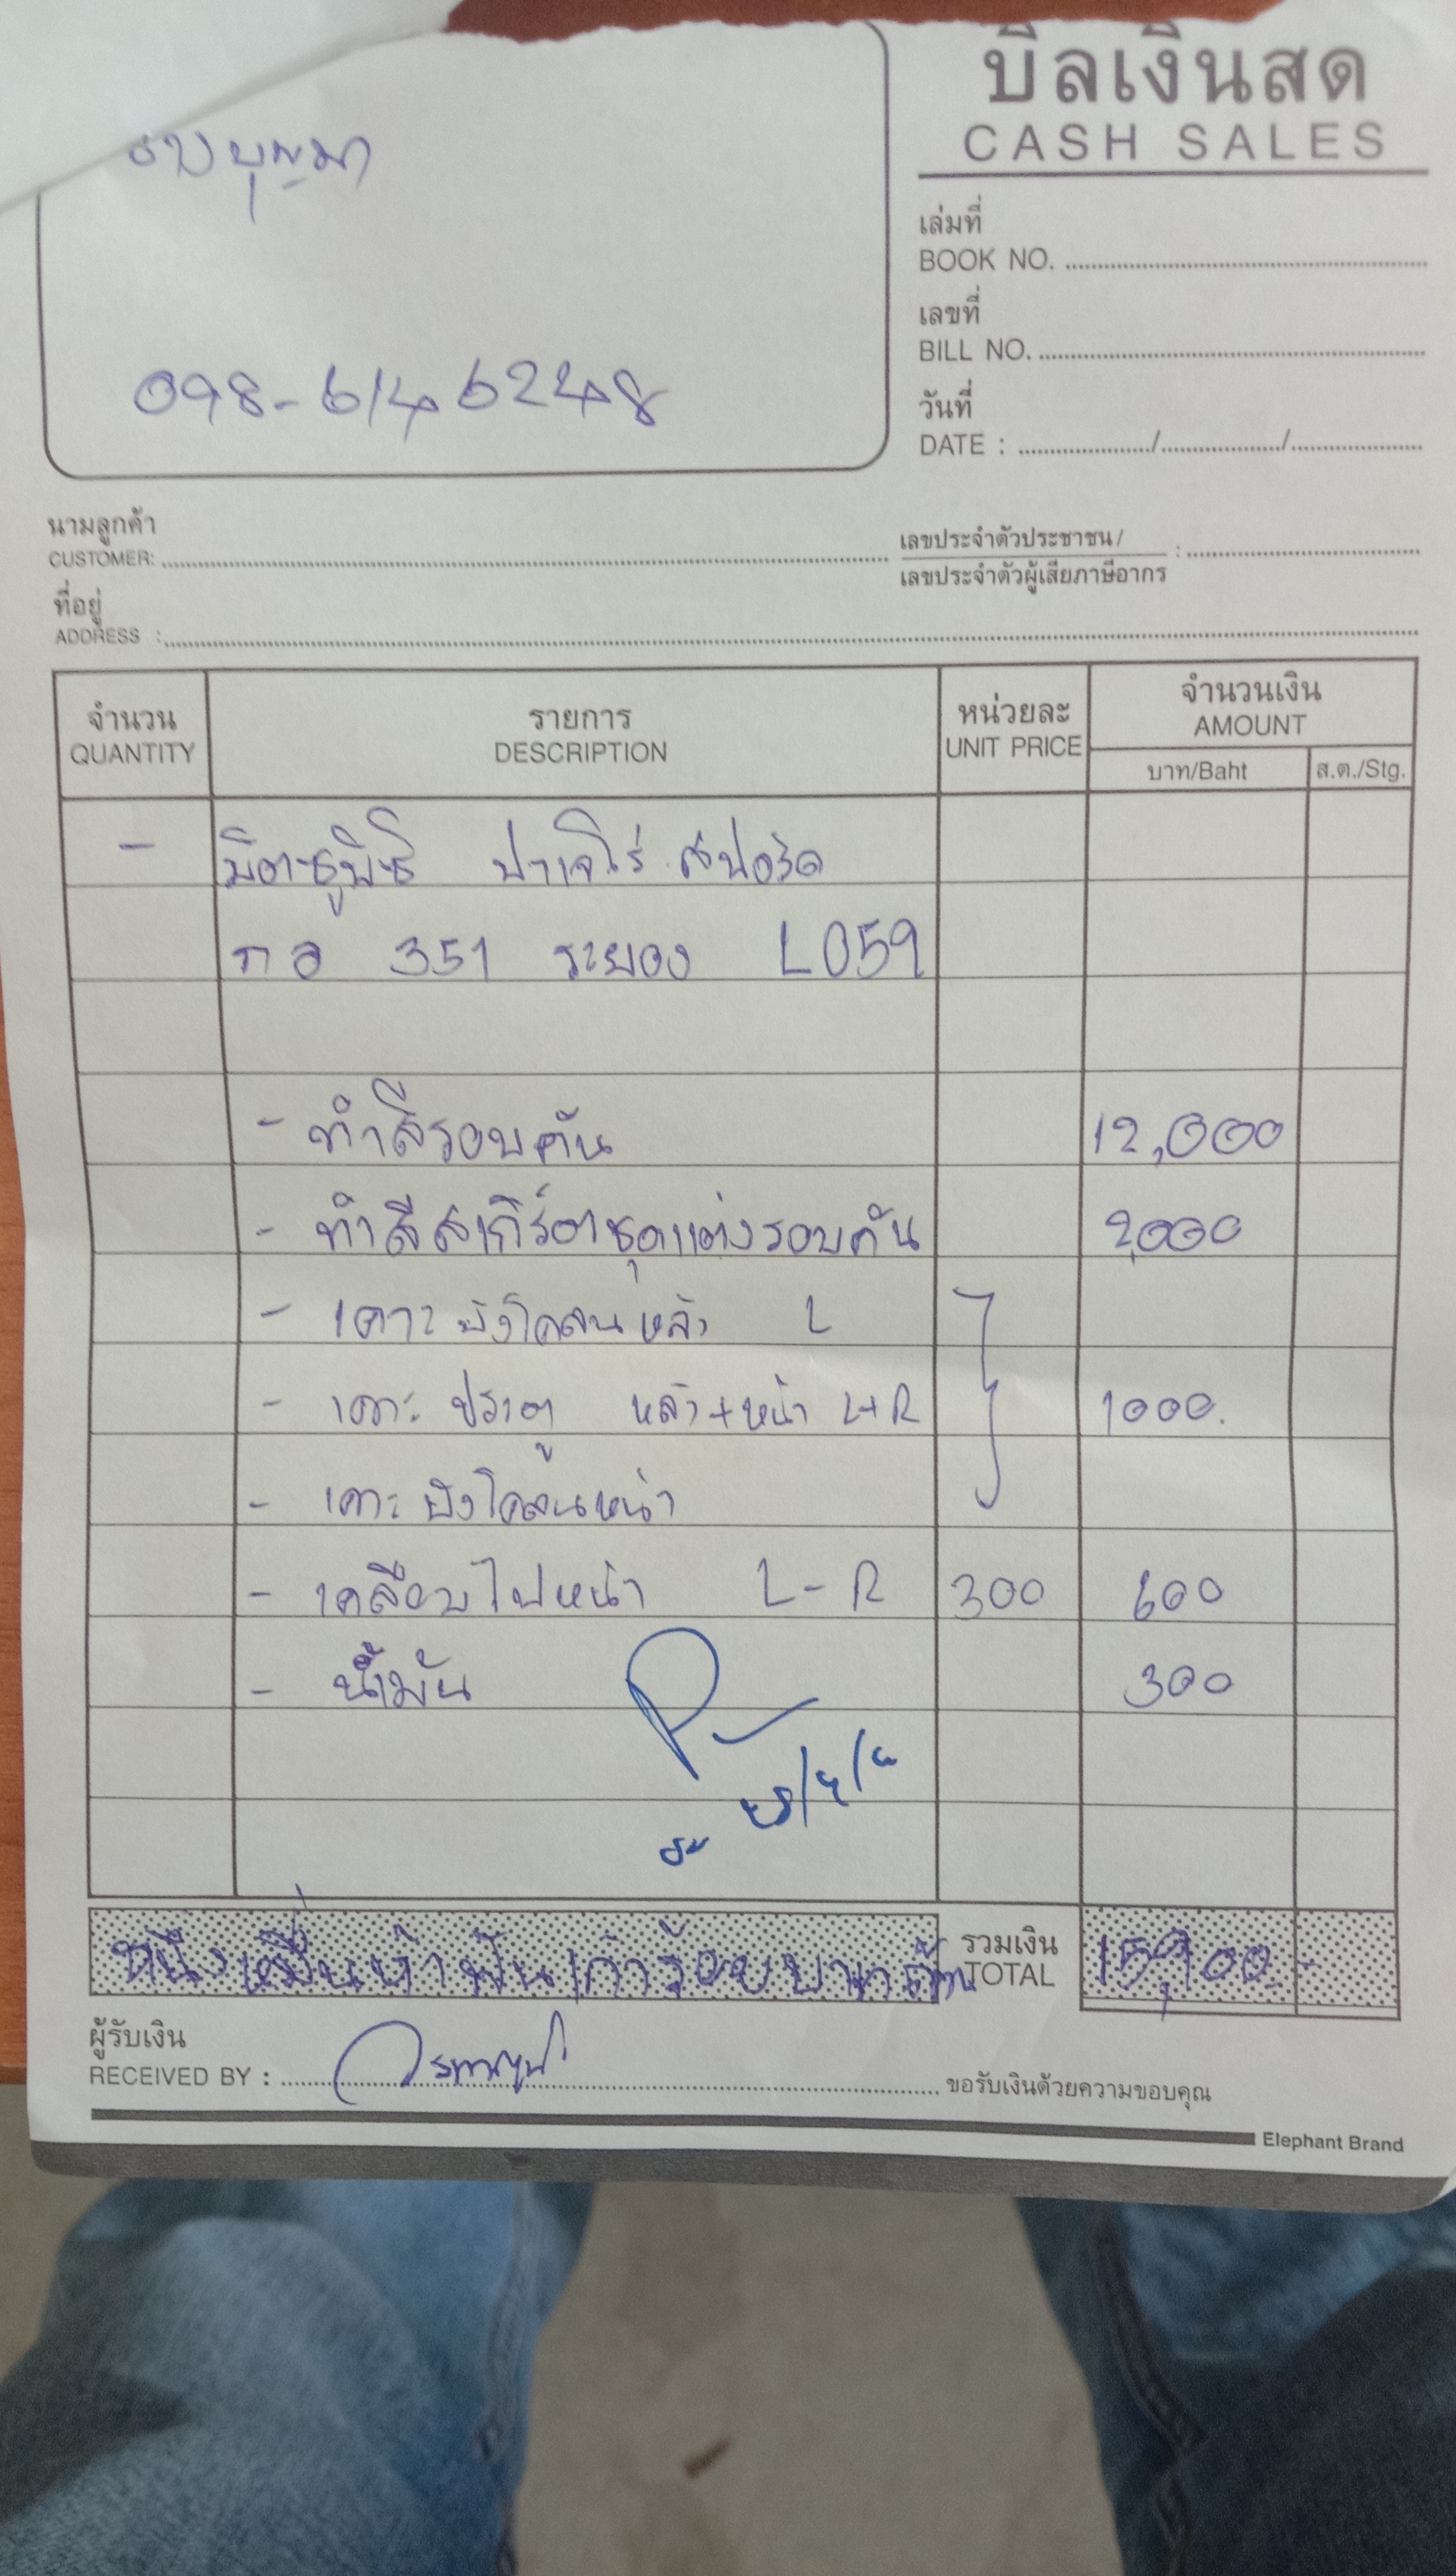 บิลเงินสด
CASH SALES
บุญมา
098-6146248
เล่มที่
BOOK NO.
เลขที่
BILL NO.
วันที่
DATE : / /
นามลูกค้า
CUSTOMER:
เลขประจำตัวประชาชน /
เลขประจำตัวผู้เสียภาษีอากร :
ที่อยู่
ADDRESS :
จำนวน รายการ หน่วยละ จำนวนเงิน
QUANTITY DESCRIPTION UNIT PRICE AMOUNT
บาท/Baht ส.ต./Stg.
- มิตซูบิชิ ปาเจโร่ สปอร์ต
กอ 351 ระยอง L059
- ทำสีรอบคัน 12,000
- ทำสีสเกิร์ตชุดแต่งรอบคัน 2,000
- เคาะบังโคลนหลัง L
- เคาะประตู หลัง+หน้า L+R 1000.
- เคาะบังโคลนหน้า
- เคลือบไฟหน้า L-R 300 600
- น้ำมัน 300
หนึ่งหมื่นห้าพันเก้าร้อยบาทถ้วน รวมเงิน 15,900 -
TOTAL
ผู้รับเงิน
RECEIVED BY : ขอรับเงินด้วยความขอบคุณ
Elephant Brand